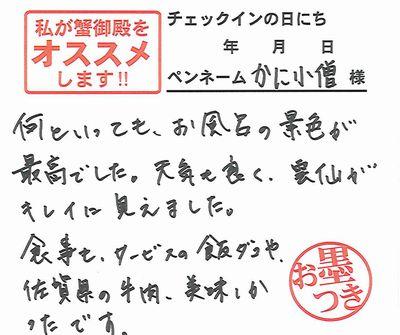 私が蟹御殿を
オススメ
します!!
チェックインの日にち
年 月 日
ペンネーム かに小僧 様
何といっても、お風呂の景色が
最高でした。天気も良く、雲仙が
キレイに見えました。
食事も、サービスの飯ダコや、
佐賀県の牛肉、美味しか
ったです。
お墨
つき